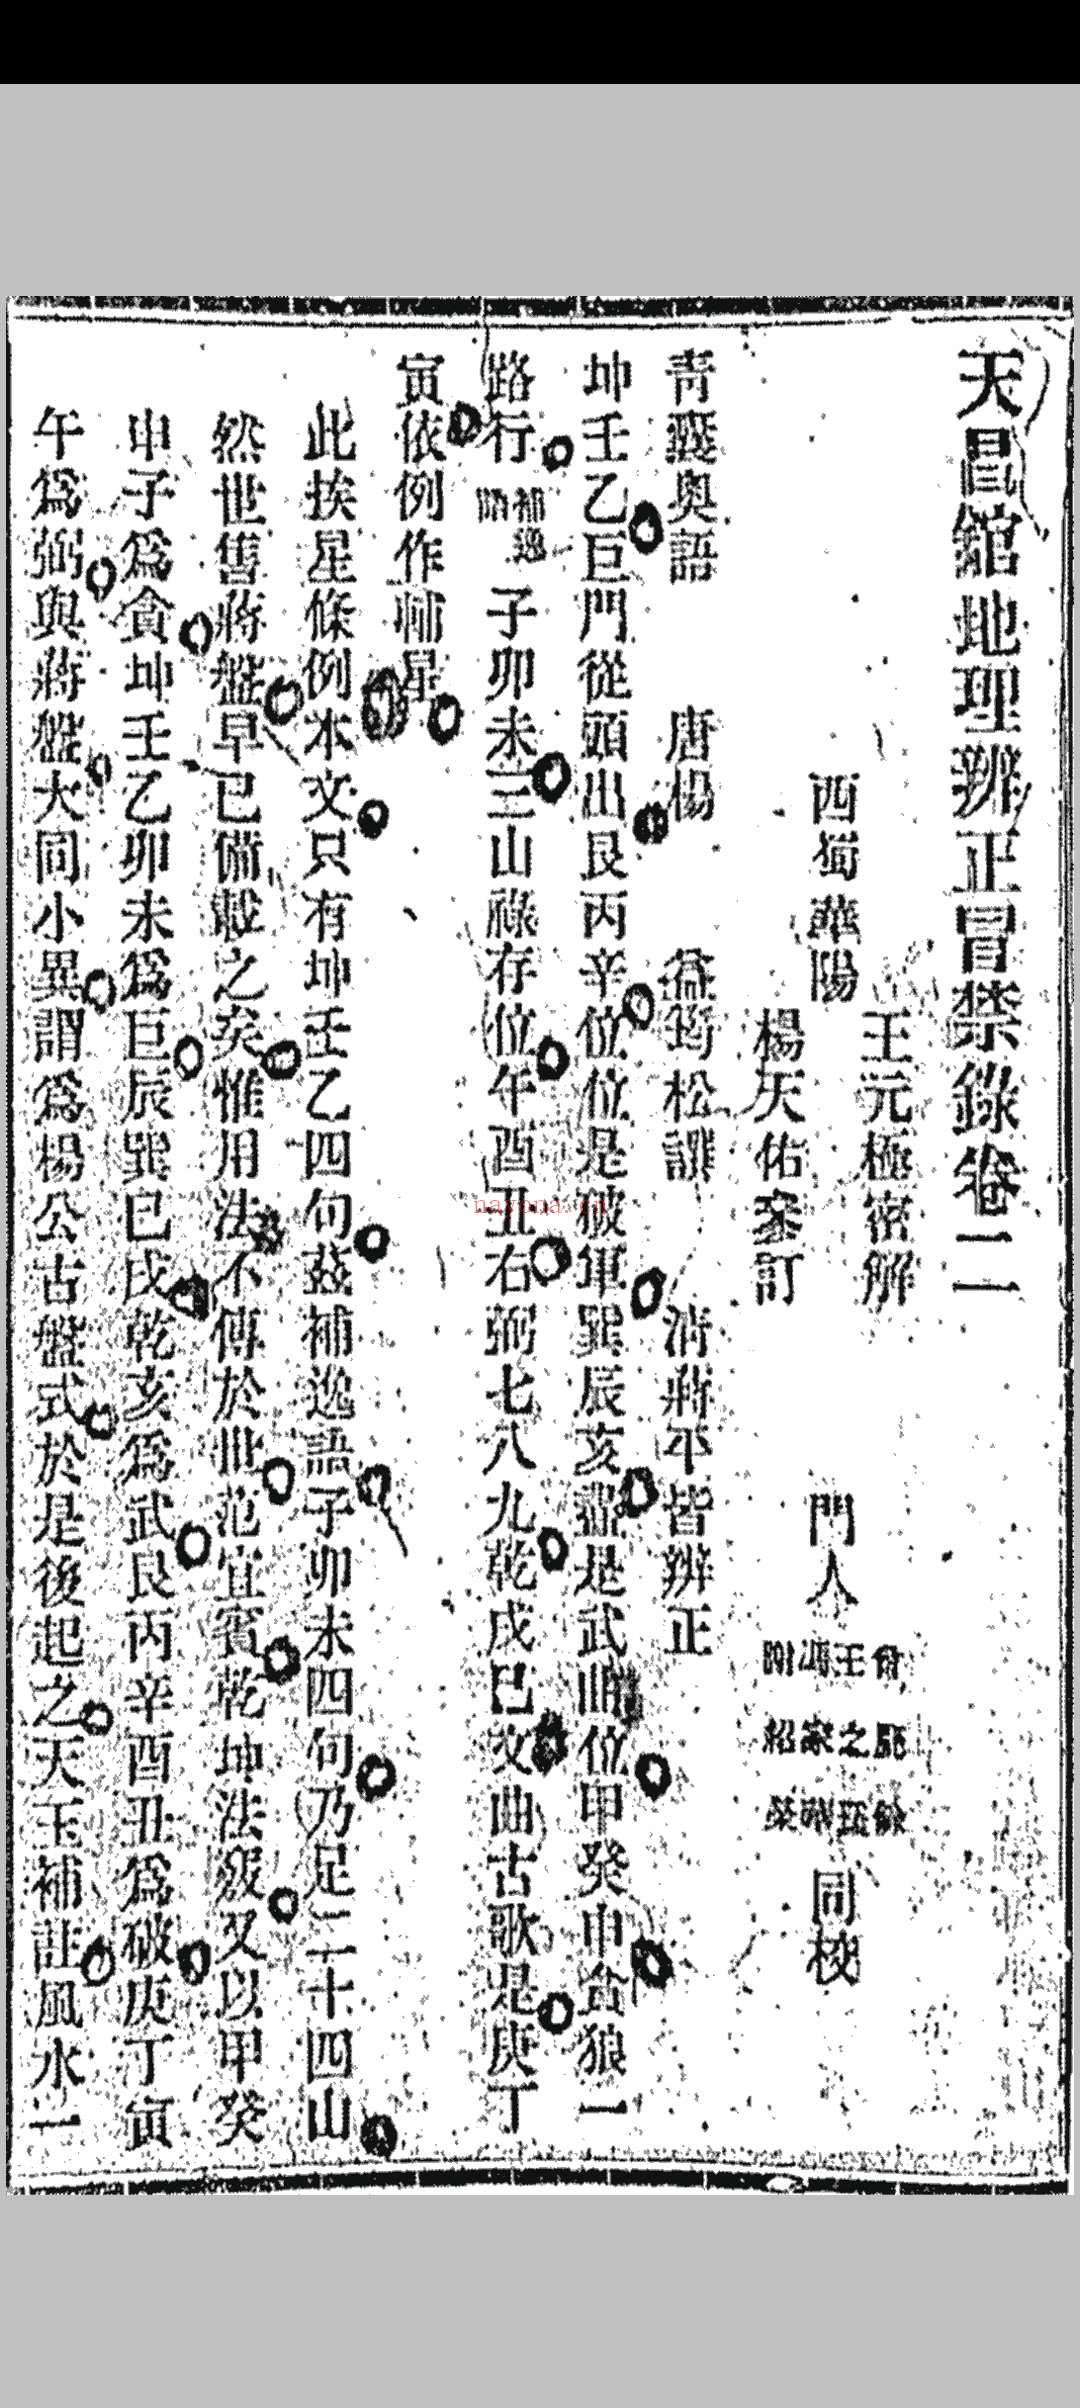 天昌館地理辨正冒禁錄卷二
西蜀華陽
王元極密解
楊天佑參訂
門人
王之
馮家
紹榮
同校
青囊奧語 唐楊 益筠松譔 清蔣平皆辨正
坤壬乙巨門從頭出艮丙辛位位是破軍巽辰亥盡是武曲位甲癸申貪狼一
路行 補逸 子卯未三山祿存位午酉丑右弼七八九乾戌巳文曲古歌是庚丁
寅依例作輔星
此挨星條例本文只有坤壬乙四句茲補逸語子卯未四句乃足二十四山
然世售蔣盤早已備載之矣惟用法不傳於世范宜賓乾坤法竅又以甲癸
申子爲貪坤壬乙卯未爲巨辰巽巳戌乾亥爲武艮丙辛酉丑爲破庚丁寅
午爲弼與蔣盤大同小異謂爲楊公古盤式於是後起之天玉補註風水一
nayona.cn